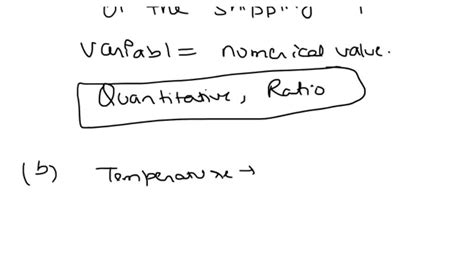 of the shipping
Variabl = numerical value.
Quantitative, Ratio
(b) Temperature →